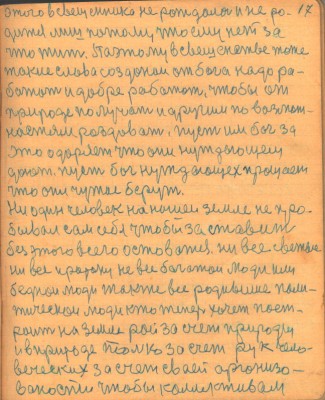 этого всвещенника не рождался и не ро- 17
дится лиш потому что ему нет за
что жит. Поэтому всвещенстве тоже
такие слова созданои от бога надо ра-
ботат и добре работат, чтобы от
природе получат и другим по возмож-
настям роздоват, пуст им бог за
это одоряет что они нуждающем
дают. пуст бог нуждающех прощает
что они чужое берут.
Ни один человек на нашей земле не про-
бывал сам себя чтобы заставит
без этого всего остоватся. ни все святые
ни все не все богатои люди или
беднои люди также все родившие поли-
тическои люди кто тепер хочет пост-
роит на земле рай за счет природы
и вприроде толко за счет рук чело-
веческих за счет своей арганизо-
ваности чтобы коллективам